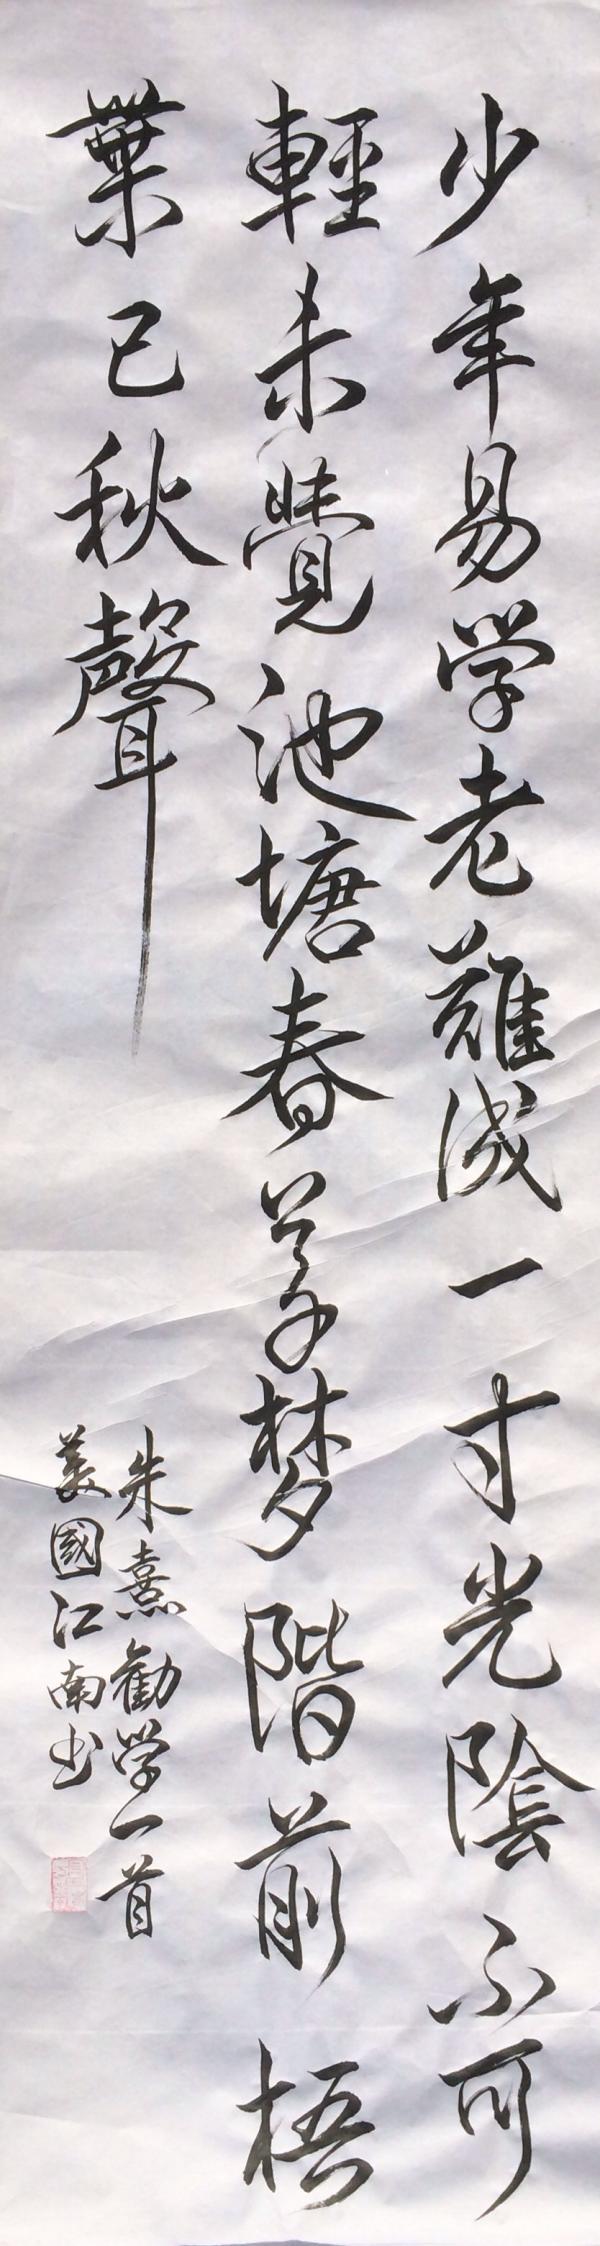 少年易学老難成一寸光陰不可
輕未覺池塘春草梦階前梧
葉已秋聲
朱熹勸学一首
美國江南书